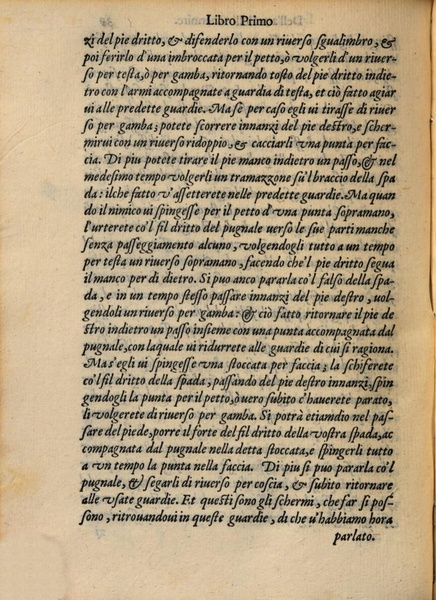 Libro Primo
zi del pie dritto, & difenderlo con un riverso sgualimbro, &
poi ferirlo d'una imbroccata per il petto, ò volgerli d'un river-
so per testa, ò per gamba, ritornando tosto del pie dritto indie-
tro con l'armi accompagnate a guardia di testa, et ciò fatto agiar
vi alle predette guardie. Ma se per caso egli vi tirasse di river
so per gamba; potete scorrere innanzi del pie destro, e scher-
mirui con un riverso ridoppio, & cacciarli vna punta per fac-
cia. Di piu potete tirare il pie manco indietro un passo, & nel
medesimo tempo volgerli un tramazzone sù'l braccio della spa
da: ilche fatto v'assetterete nelle predette guardie. Ma quan
do il nimico vi spingesse per il petto d'vna punta sopramano,
l'urterete co'l fil dritto del pugnale verso le sue parti manche
senza passeggiamento alcuno, volgendogli tutto a un tempo
per testa un riverso sopramano, facendo che'l pie dritto segua
il manco per di dietro. Si puo anco pararla co'l falso della spa-
da, e in un tempo stesso passare innanzi del pie destro, vol-
gendoli un riverso per gamba: & ciò fatto ritornare il pie de
stro indietro un passo insieme con una punta accompagnata dal
pugnale, con laquale vi ridurrete alle guardie di cui si ragiona.
Ma s'egli vi spingesse vna stoccata per faccia; la schiferete
co'l fil dritto della spada; passando del pie destro innanzi, spin
gendogli la punta per il petto, ò vero subito c'hauerete parato,
li volgerete di riverso per gamba. Si potrà etiamdio nel pas-
sare del piede, porre il forte del fil dritto della vostra spada, ac
compagnata dal pugnale nella detta stoccata, e spingerli tutto
a vn tempo la punta nella faccia. Di piu si puo pararla co'l
pugnale, & segarli di riverso per coscia, & subito ritornare
alle vsate guardie. Et questi sono gli schermi, che far si pos-
sono, ritrouandoui in queste guardie, di che v'habbiamo hora
parlato.